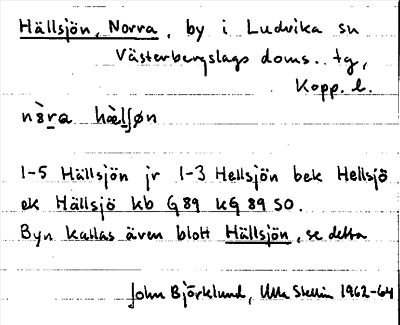 Hällsjön, Norra, by i Ludvika sn
Västerbergslags doms. tg,
Kopp. l.
nòra hæ̀lʃøn
1-5 Hällsjön jr 1-3 Hellsjön bek Hellsjö
ek Hällsjö kb G 89 kG 89 SO.
Byn kallas även blott Hällsjön, se detta
John Björklund, Ulla Stellin 1962-64